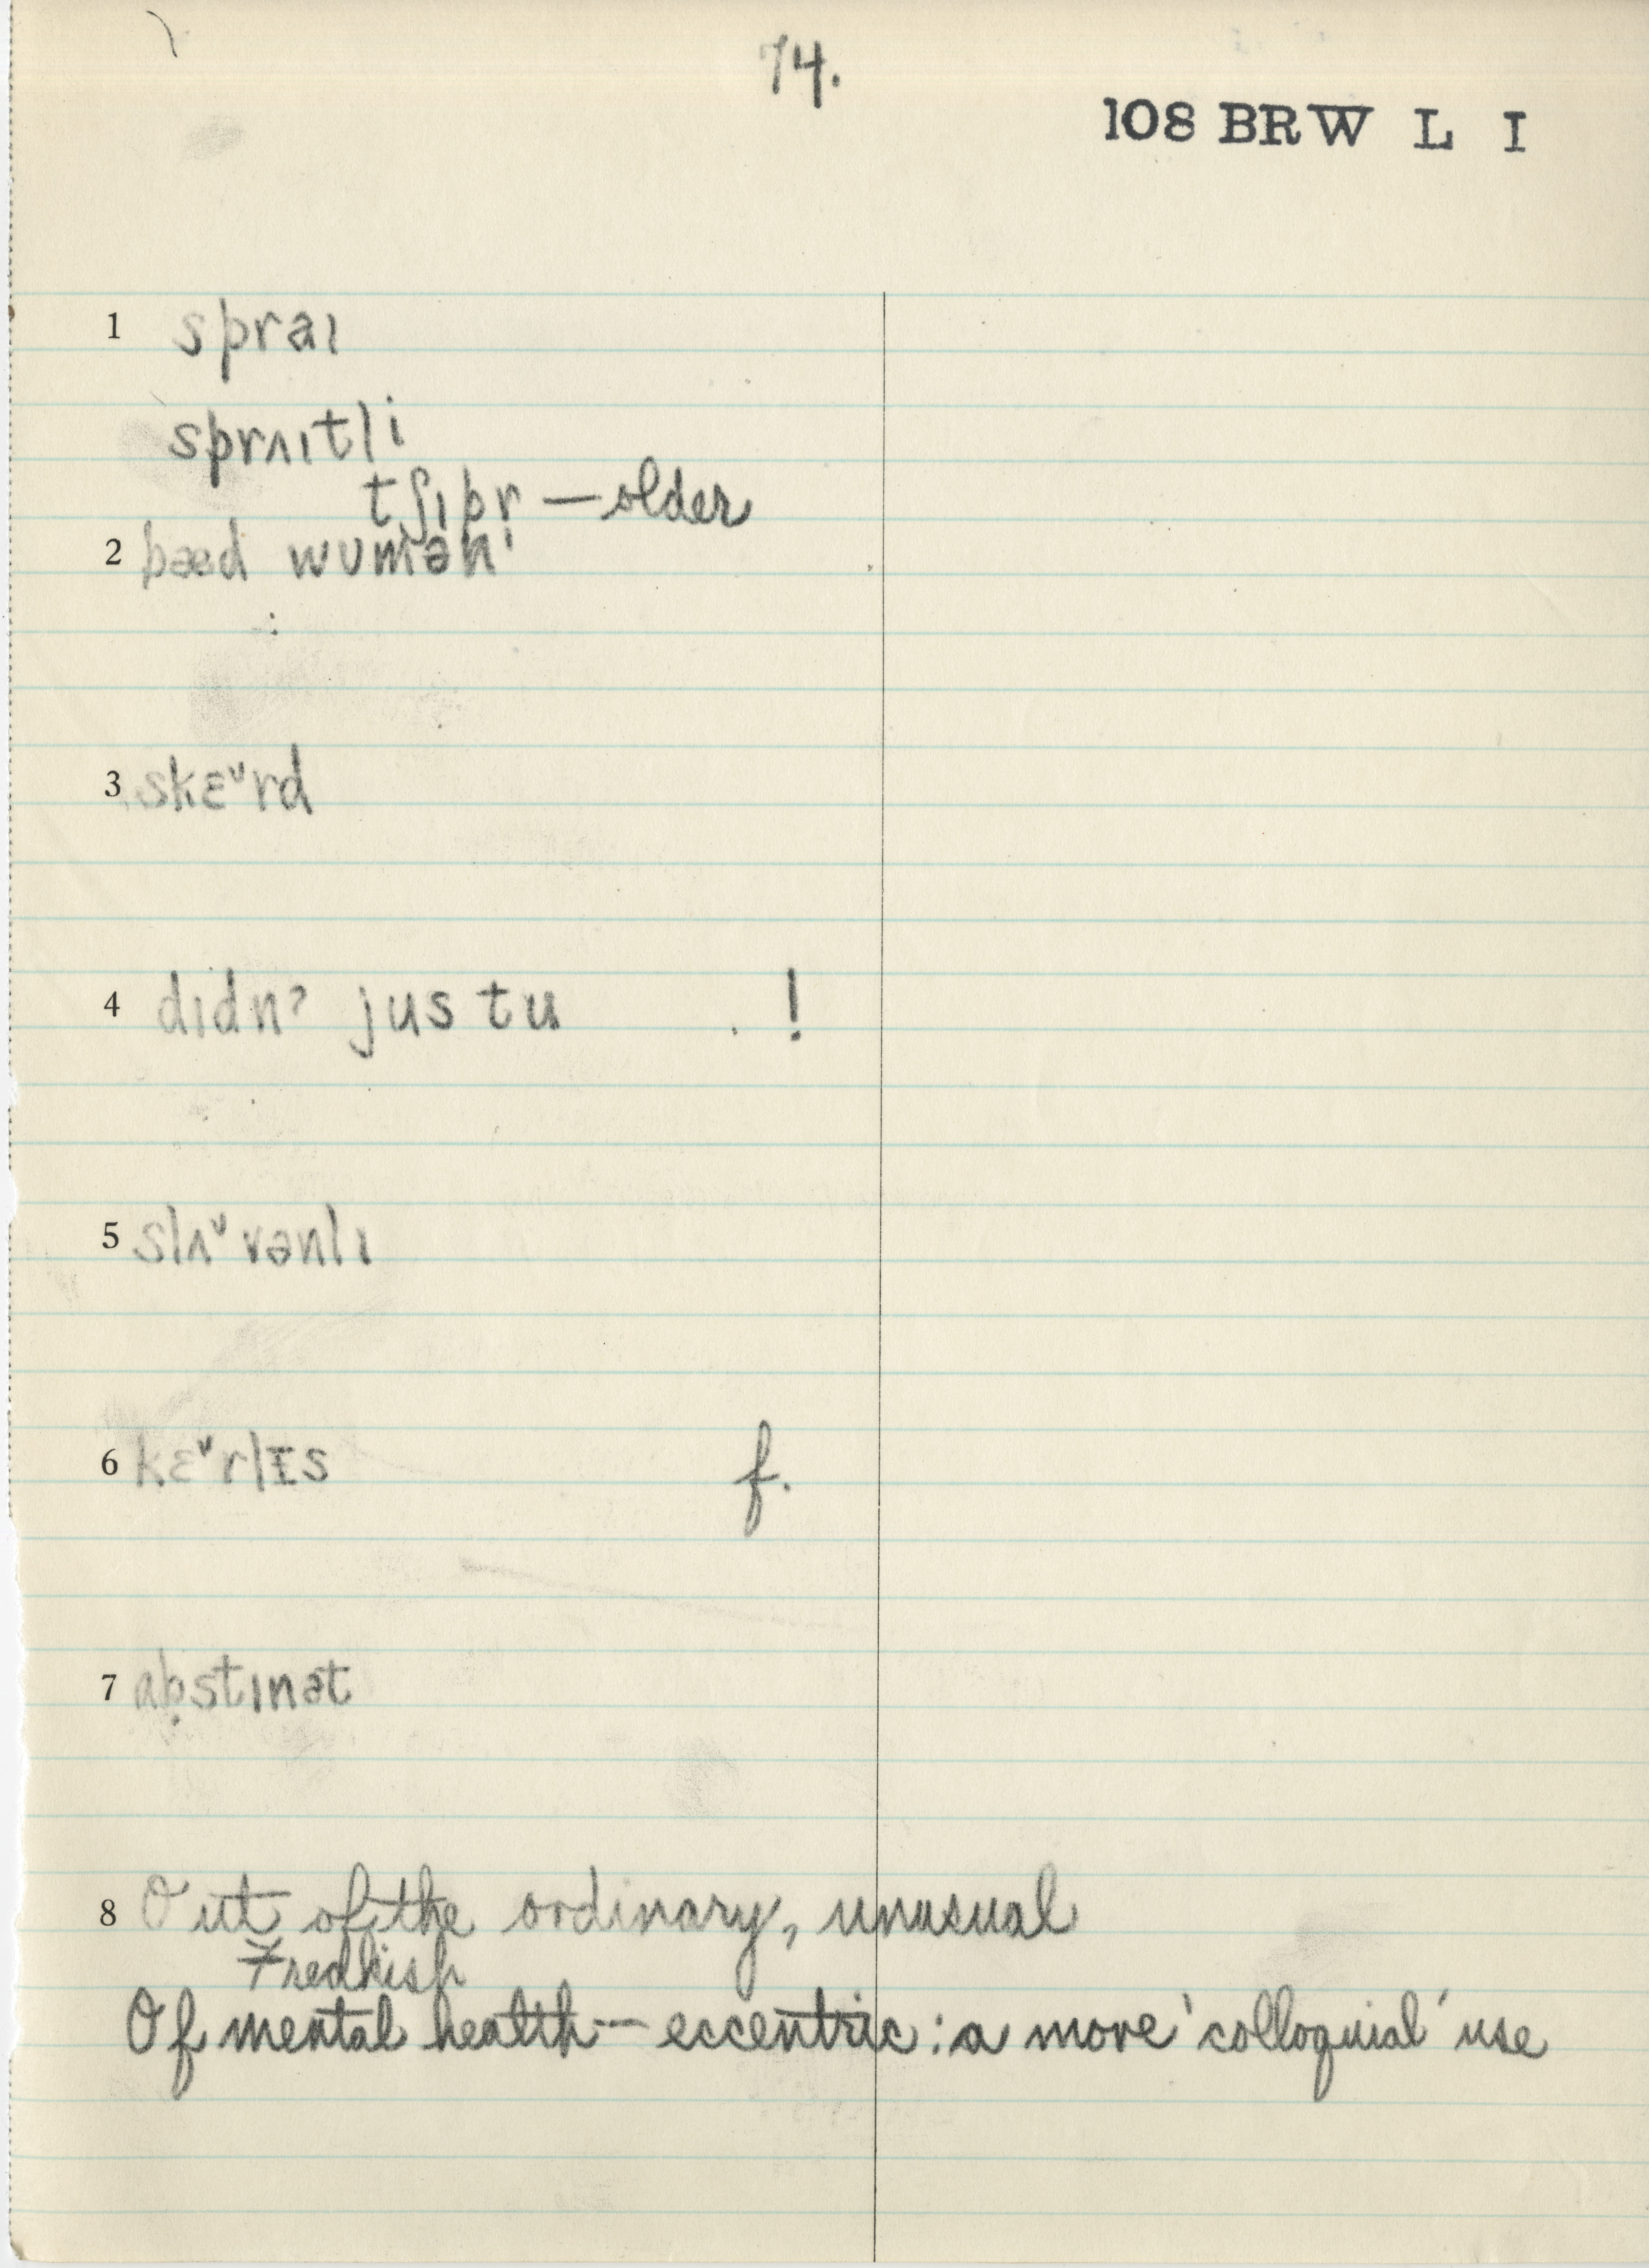 74.
108 BRW L I
1 spraɪ
sprʌɪtli
tʃɪpr̩ — older
2 bæd wʊmən
3 skɛ˅rd
4 dɪdnˀ jus tu !
5 slʌ˅vənlɪ
6 kɛ˅rlɪs f.
7 ab̥stɪnət
8 Out of the ordinary, unusual
Of mental health -- eccentric : a more 'colloquial' use